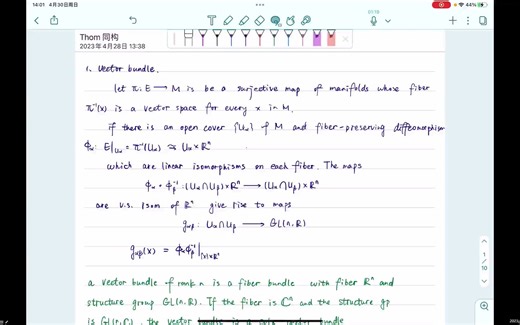 14:01 4月30日周日
01:18
44%
Thom 同构
2023年4月28日 13:38
1. Vector bundle.
Let π: E → M is be a surjective map of manifolds whose fiber
π⁻¹(x) is a vector space for every x in M.
if there is an open cover {Uα} of M and fiber-preserving diffeomorphism
ϕα: E|Uα = π⁻¹(Uα) ≃ Uα × Rⁿ
which are linear isomorphisms on each fiber. The maps
ϕα ∘ ϕβ⁻¹: (Uα ∩ Uβ) × Rⁿ → (Uα ∩ Uβ) × Rⁿ
are v.s. isom of Rⁿ give rise to maps
gαβ: Uα ∩ Uβ → GL(n, R)
gαβ(x) = ϕαϕβ⁻¹|{x}×Rⁿ
a vector bundle of rank n is a fiber bundle with fiber Rⁿ and
structure group GL(n, R). If the fiber is ℂⁿ and the structure gp
is GL(n, ℂ), the vector bundle is a vector bundle
1
/
10